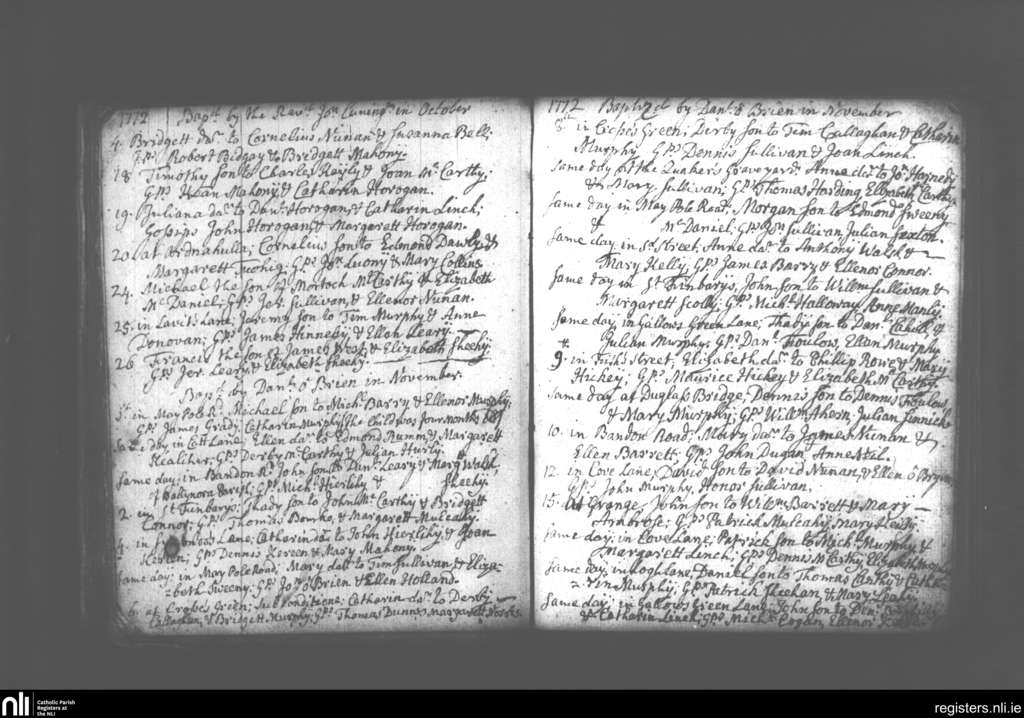 1772 Bapt. by the Revd. Jon. Cuningm in October
4. Bridgett dar. to Cornelius Nunan & Susanna Bell;
Gps. Robert Bidgay & Bridgett Mahony.
18. Timothy son to Charles Reyly & Joan Mc. Carthy;
Gps. Mahony & Catharin Horogan.
19. Juliana dar. to Danl. Horogan, & Catharin Linch;
Gossips John Horogan & Margarett Horogan.
20. at Ardnahulla; Cornelius son to Edmond Dawly &
Margarett Twohig; Gps. Jon. Luony & Mary Collins
24. Michael the son to Mortoch Mc. Carthy & Elizabeth
Mc Daniel; Gps. Jon. Sullivan, & Ellenor Nunan.
25. in Lavits Lane; Jeremy son to Tim Murphy & Anne
Donovan; Gps. James Hinneby; & Ellan Leary.
26 Francis the son to James West, & Elizabeth Sheehy;
Gps. Jer. Leary, & Elizabeth Sheehy.
Bapt. by Danl. O Brien in November.
in May Pole Rd. Michael son to Michl. Barry & Ellenor Murphy,
Gps. James Grady, Catharin Murphy, the child was four months old
day in Cott Lane; Ellen dar. to Edmond & Margarett
Kealiher; Gps. Derby Mc. Carthy & Julian Hurly.
same day; in Bandon Rd. John son to Danl. Leary & Marg Walsh,
of Parish; Gps. Michl. Hierlihy & Sheehy.
2. in St. Finbarys. Thady son to John Mc. Carthy & Bridgett
Connor; Gps. Thomas Bourke, & Margarett Muleahy.
4. in Lane; Catharin dar. to John Hierlihy, & Joan
Kereen, Gps. Dennis Kereen & Mary Mahony.
same day; in May Pole Road; Mary dar. to Tim Sullivan & Eliza-
-beth Sweeny. Gps. Jon. O Brien & Ellen Holland.
6. at Crosses Green; Sub Conditione; Catharin dar. to Derby
Callaghan, & Bridgett Murphy; Gps. Thomas Dunn, Margarett
1772 Baptzd by Danl. O Brien in November
8th in Green; Derby son to Tim Callaghan & Catharin
Murphy Gps. Dennis Sullivan & Joan Linch.
same day at the Quakers Graveyard. Anne dar. to Jon.
& Mary Sullivan; Gps. Thomas Harding Elizabeth Carthy
same day in May Pole Road, Morgan son to Edmond Sweeny
& Mc. Daniel; Gps. Jon. Sullivan Julian Sexton.
same day in Sd. Street, Anne dar. to Anthony Walsh &
Mary Kelly; Gps. James Barry & Ellenor Connor.
same day in St Finbarys, John son to Willm Sullivan &
Margarett Scolly; Gps. Michl. Halloway, Anne Manly.
same day; in Gallows Green Lane; Thady son to Danl. Cahill &
Julian Murphy; Gps. Danl. Toulow, Ellan Murphy
9. in Fish Street, Elizabeth dar. to Phillip Rowe & Mary
Hickey; Gps. Maurice Hickey & Elizabeth Mc Carthy.
same day at Duglass Bridge, Dennis son to Dennis Toulow,
& Mary Murphy; Gps. Willm. Ahern, Julian
10. in Bandon Road; Mary dar. to James Nunan &
Ellen Barrett; Gps. John Dugan, Anne
12 in Cove Lane, David son to David Nunan, & Ellen O Bryan
Gps. John Murphy, Honor Sullivan.
15. at Grange, John son to Willm. Barrett & Mary
Ambrose; Gps. Patrick Muleahy, Mary Leahy
same day; in Cove Lane, Patrick son to Michl. Murphy &
Margarett Linch; Gps. Dennis Mc. Carthy, Elizabeth
same day; in Lane, Daniel son to Thomas Carthy & Catha-
-rin Murphy; Gps. Patrick Sheehan, & Mary Leahy.
same day; in Gallows Green Lane; John son to Den.
& Catharin Linch; Gps. Michl. Cogan, Ellenor
nli
Catholic Parish
Registers at
the NLI
registers.nli.ie